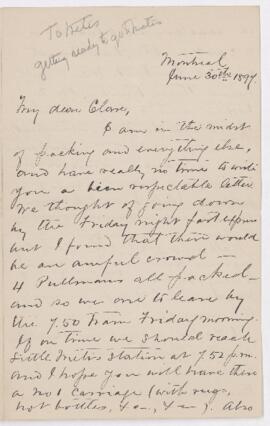 To Metis
getting ready to go to Metis
Montreal
June 30th 1897.
My dear Clare,
I am in the midst
of packing and everything else,
and have really no time to write
you a respectable letter
We thought of going down
by the Friday night fast express
but I found that there would
be an awful crowd —
4 Pullmans all packed —
and so we are to leave by
the 7.50 train Friday morning.
If on time we should reach
Little Metis Station at 7.52 p.m.
and I hope you will have there
a no 1 carriage (with rugs,
hot bottles, &c, &c). Also